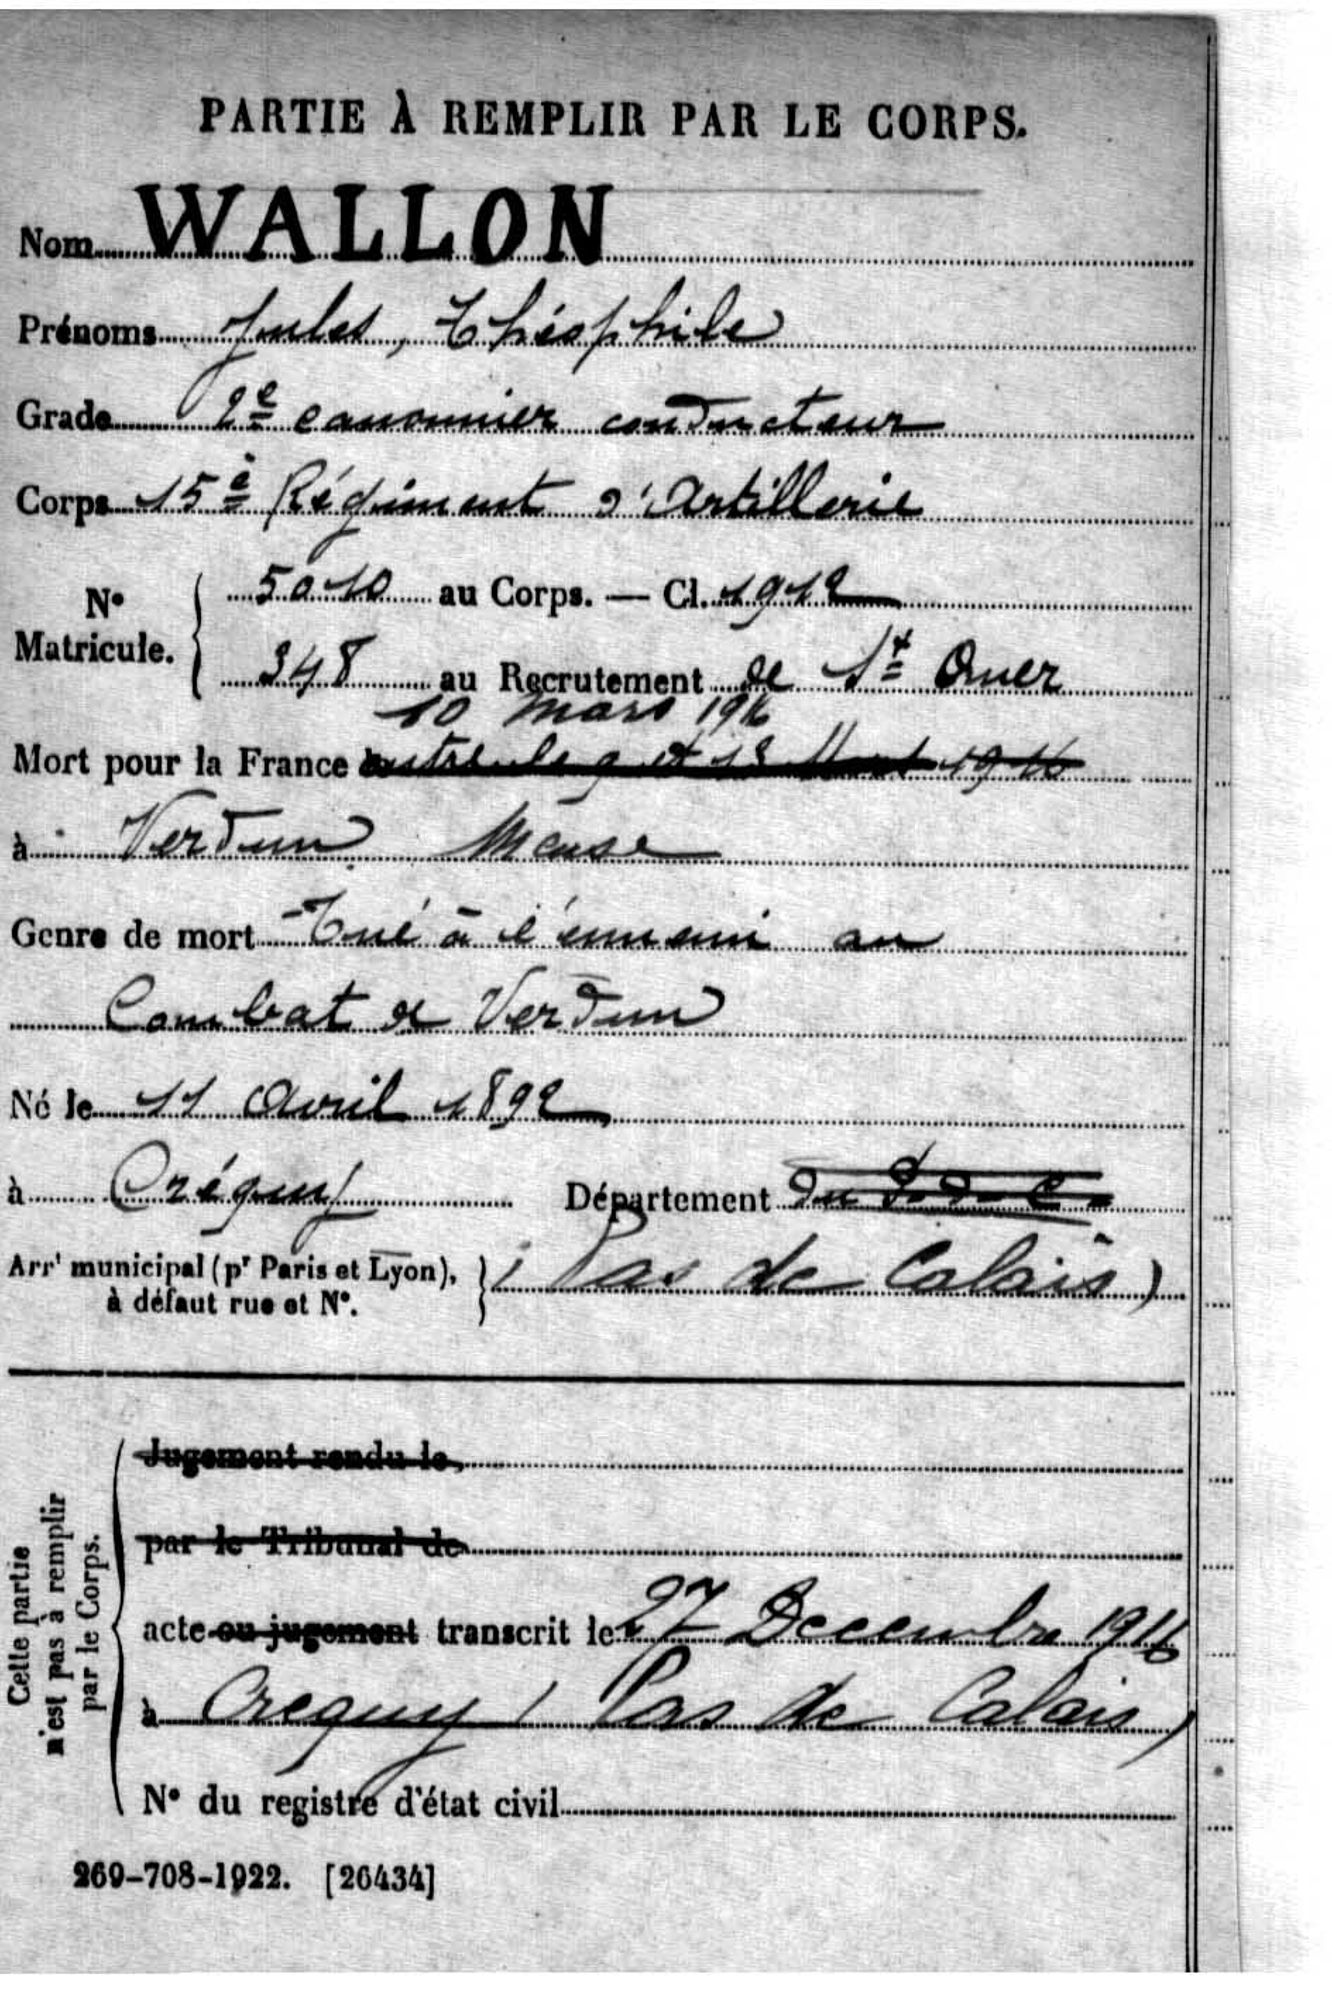 PARTIE À REMPLIR PAR LE CORPS.
Nom WALLON
Prénoms Jules, Théophile
Grade 2e canonnier conducteur
Corps 15e Régiment d'Artillerie
No Matricule. { 5010 au Corps. — Cl. 1912
348 au Recrutement de St Omer
10 mars 1916
Mort pour la France entre le 9 et 13 Mars 1916
à Verdun Meuse
Genre de mort Tué à l'ennemi au
Combat de Verdun
Né le 11 Avril 1892
à Créquy Département du P. de C.
Arrt municipal (pr Paris et Lyon), à défaut rue et No. } ( Pas de Calais )
Cette partie n'est pas à remplir par le Corps.
Jugement rendu le
par le Tribunal de
acte ou jugement transcrit le 27 Decembre 1916
à Crequy ( Pas de Calais )
No du registre d'état civil
269-708-1922. [26434]